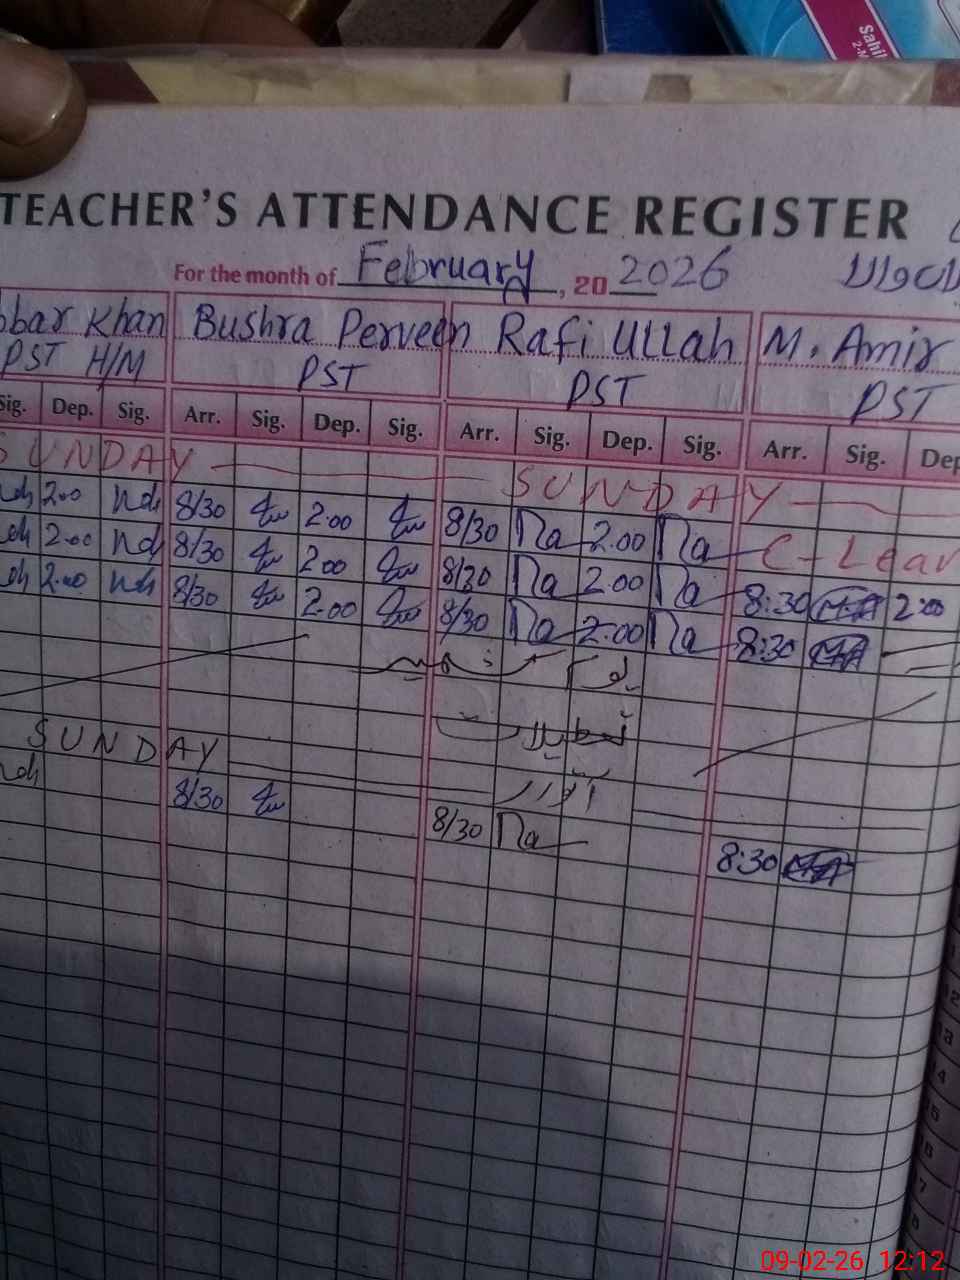 Sahil
TEACHER'S ATTENDANCE REGISTER
For the month of February, 20 2026
bbar Khan Bushra Perveen Rafi Ullah M. Amir
PST H/M PST PST PST
Sig. Dep. Sig. Arr. Sig. Dep. Sig. Arr. Sig. Dep. Sig. Arr. Sig. Dep
SUNDAY SUNDAY
2.00 8/30 2.00 8/30 Na 2.00 Na C-Leav
2.00 8/30 2.00 8/30 Na 2.00 Na 8:30 2:00
2.00 8/30 2.00 8/30 Na 2.00 Na 8:30
یوم کشمیر
تعطیلات
SUNDAY اتوار
8/30 8/30 Na 8:30
09-02-26 12:12